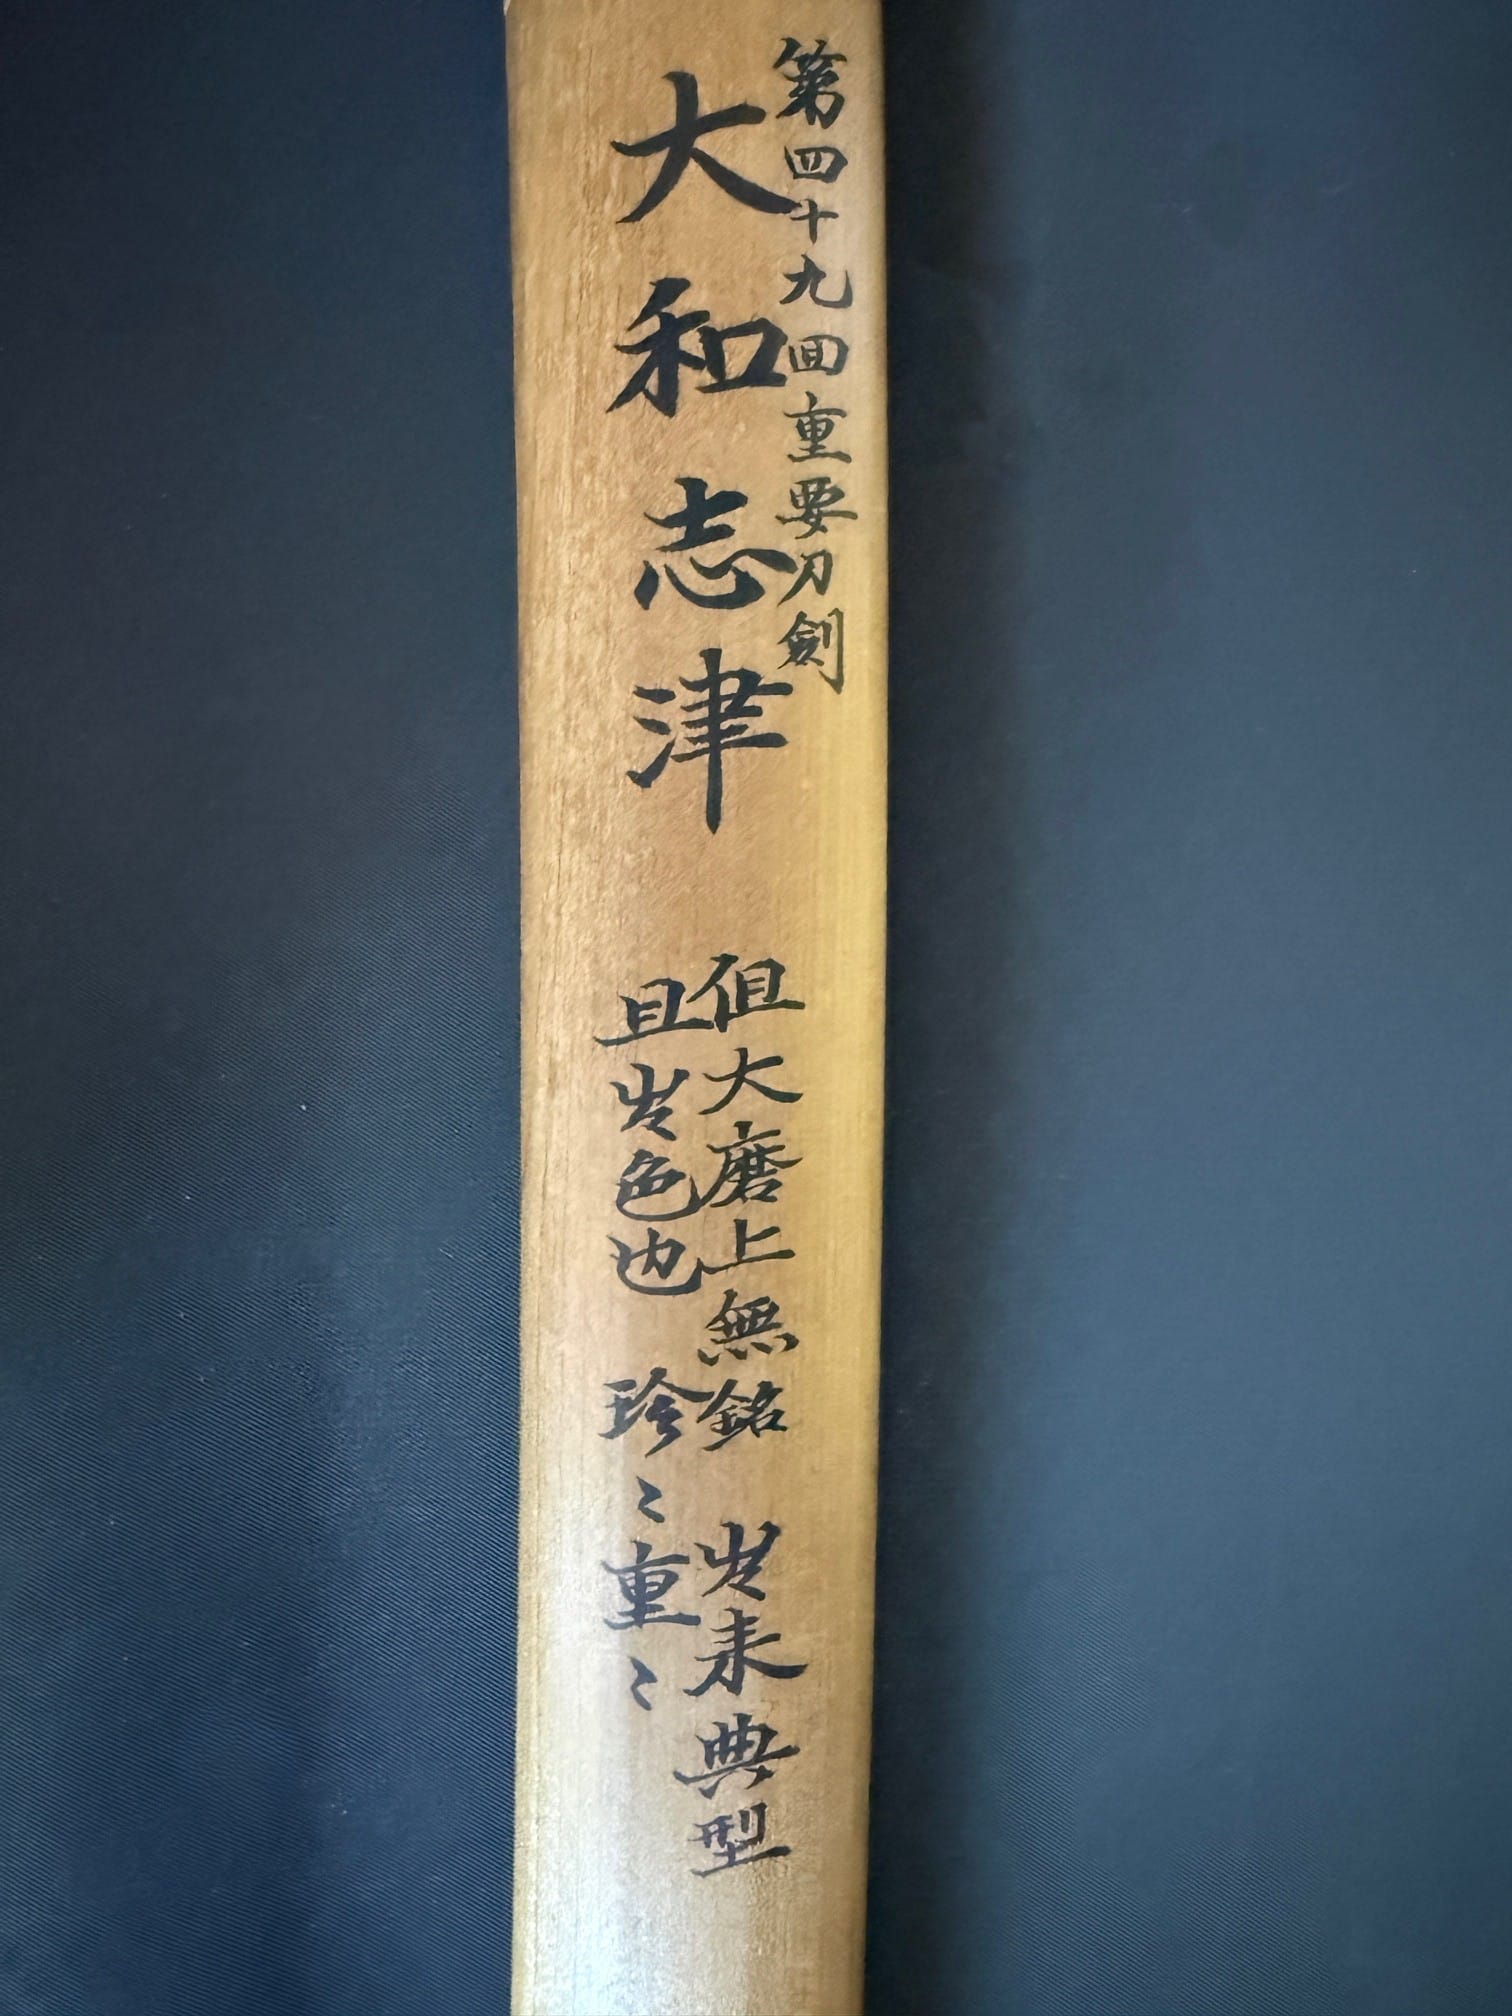 第四十九回重要刀劍
大和志津
但大磨上無銘 出来典型
且出色也 珍〻重〻